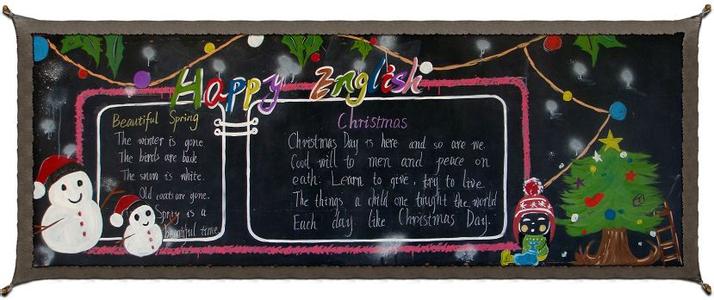 Happy English
Beautiful Spring
The winter is gone
The birds are back
The snow is white.
Old coats are gone.
Spry is a
beautiful time
Christmas
Christmas Day is here and so are we.
Cood will to men and peace on
eath. Learn to give, try to live.
The things a child one tought the world
Each day like Christmas Day.